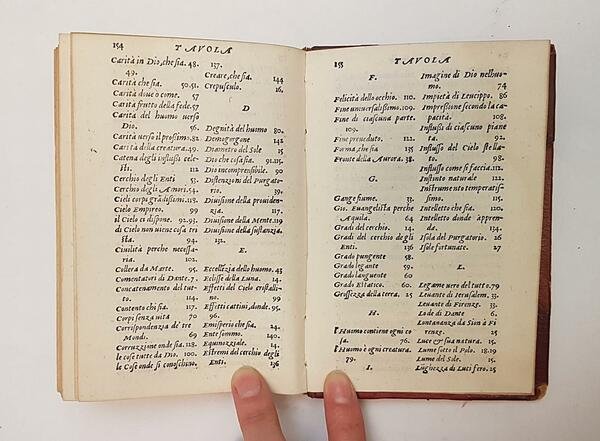 154
TAVOLA
Carità in Dio, che sia. 48.
49.
Carità che sia. 50.51
Carità doue o come. 57
Carità frutto della fede. 57
Carità del huomo verso
Dio. 56
Carità verso il prossimo. 82
Carità della creatura. 49
Catena degli influssi celesti. 112
Cerchio degli Enti 53
Cerchio degli Amori. 54
Cieli corpi grādissimi. 118
Cielo Empireo. 99
il Cielo ci dispone. 92.93
di Cielo non viene cosa trista. 94
Ciuilità perche necessaria. 102
Collera da Marte. 95
Comentatori di Dante. 7
Concatenamento del tutto. 114
Contento chi sia. 117
Corpi senza vita 70
Corrispondenza de' tre
Mondi. 69
Corruzzione onde sia. 118
le cose tutte da Dio. 100
le Cose onde si conoschino
137.
Creare, che sia. 144
Crepusculo. 16
D
Degnità del huomo 80
Demogorgone 142
Diametro del Sole 15
Dio che cosa sia. 91.115
Dio incomprensibile. 90
Distenzioni del Purgatorio. 39
Diuisione della prouidenzia. 117
Diuisione della Mente. 119
Diuisione della sustanzia.
132.
E.
Eccellēzia dello huomo. 43
Eclisse della Luna. 14
Effetti del Cielo cristallino 99
Effetti cattiui, donde. 95
96.
Emisperio che sia. 24
Ente sommo. 140
Equnozziale. 14
Estremi del cerchio degli
Enti. 136
155
TAVOLA
F.
Felicità dello occhio. 110
Fine uniuersalissimo. 109
Fine di ciascuna parte.
109.
Fine preueduto. 122
Forma, che sia 135
Fronte della Aurora. 38
G.
Gange fiume. 33
Gio. Euangelista perche
Aquila. 64
Gradi del cerchio. 14
Gradi del cerchio degli
Enti. 136
Grado pungente 58
Grado legante 59
Grado languente 60
Grado Estatico. 60
Grossezza della terra. 25
H.
l'Huomo contiene ogni cosa. 76
l'Huomo è ogni creatura.
79.
I.
Imagine di Dio nelhuomo. 74
Impietà di Leucippo. 86
Impressione secondo la capacità. 108
Influssi di ciascuno pianeta. 92
Influsso del Cielo stellato. 98
Influsso come si faccia. 112
Instinto naturale 122
Instrumento temperatissimo. 115
Intelletto che sia 120
Intelletto donde aprenda. 134
Isola del Purgatorio. 26
Isole fortunate. 27
L.
Legame uero del tutto. 79
Leuante di Ierusalem. 33
Leuante di Firenze. 33
Lode di Dante 6
Lontananza da Siō à Firenze 25
Luce & sua natura. 15
Lume sotto il Polo. 18.19
Lume del Sole. 15
Lūghezza di Lucifero. 25